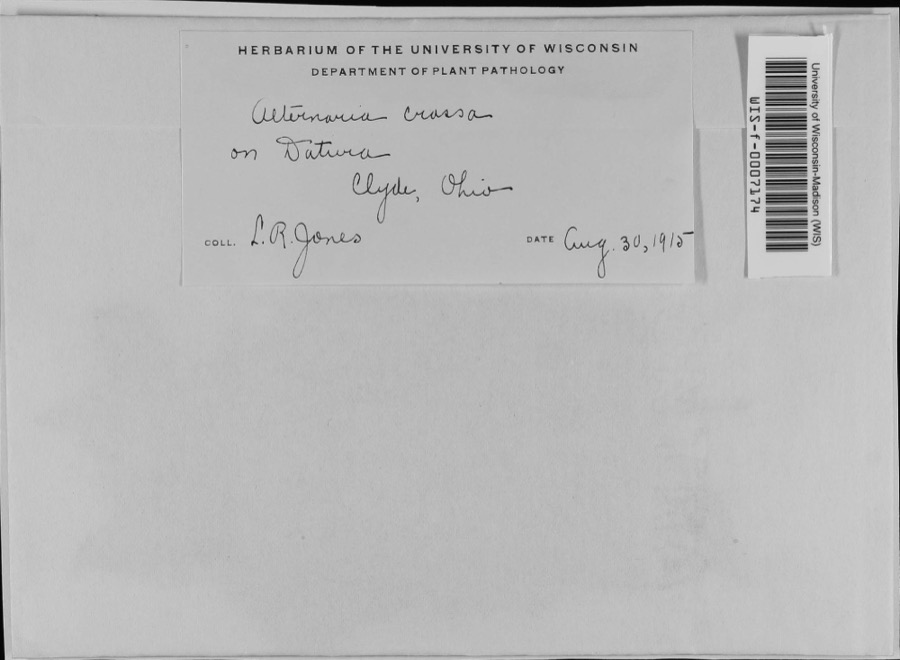 HERBARIUM OF THE UNIVERSITY OF WISCONSIN
DEPARTMENT OF PLANT PATHOLOGY
Alternaria crassa
on Datura
Clyde, Ohio
COLL. L. R. Jones
DATE Aug. 30, 1915
University of Wisconsin-Madison (WIS)
WIS-f-0007174